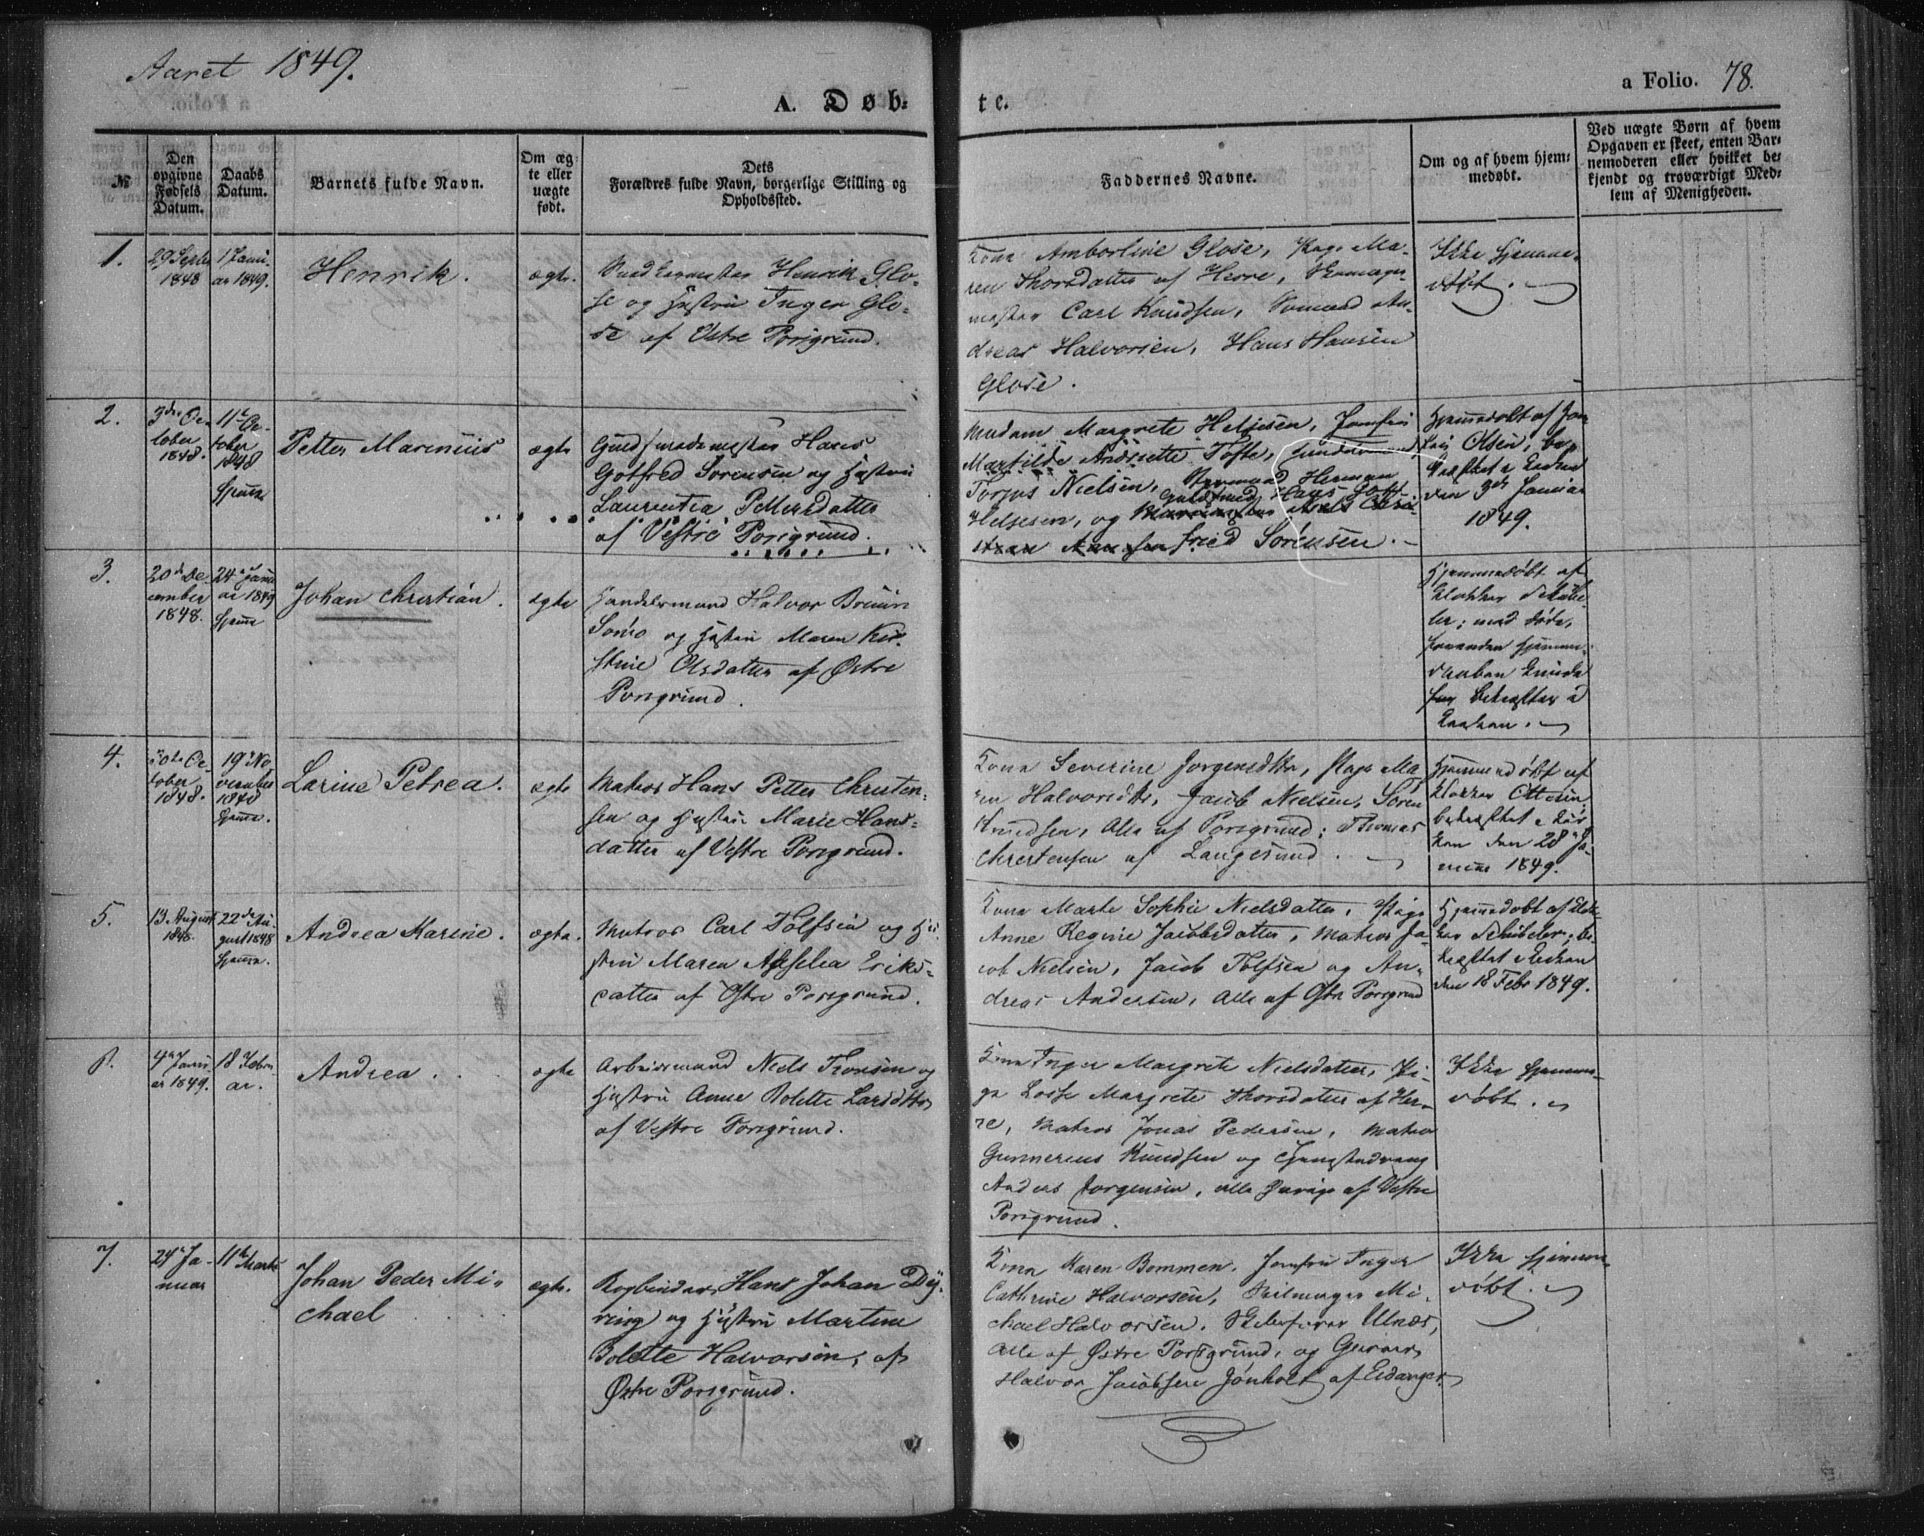 Aaret 1849.
A. Døb-
te.
a Folio. 78.
№
Den opgivne Fødsels Datum.
Daabs Datum.
Barnets fulde Navn.
Om ægte eller uægte født.
Dets Forældres fulde Navn, borgerlige Stilling og Opholdssted.
Faddernes Navne.
Om og af hvem hjemmedøbt.
Ved uægte Børn af hvem
Opgaven er skeet, enten Bar-
nemoderen eller hvilket be-
kjendt og troværdigt Med-
lem af Menigheden.
1.
29 Septbr
1848
1 Janu-
ar 1849.
Henrik.
ægte.
Henrik Glo-
se og Hustru Inger Glo-
se af Vestre Porsgrund.
Kone Amborline Glose, Pige Ma-
ren Thorsdatter af Herre,
mester Carl Knudsen, Sømand An-
dreas Halvorsen, Hans Hansen
Glose.
Ikke hjemme-
døbt.
2.
3die Oc-
tober
1848.
11te Oc-
tober
1848
hjemme
Petter Marinius
ægte
Guldsmedemester Hans
Gotfred Sørensen og Hustru
Laurentia Petersdatter
af Vestre Porsgrund.
Madam Margrete Helgesen, Jomfru
Martilde Andrsette Tofte,
Torjus Nielsen, Styrmand Herman
Guldsmed Hans Gott-
Helgesen, og
fried Sørensen.
Hjemmedøbt af
Olsen, be-
kræftet i Kirken
den 9de Januar
1849.
3.
20de De-
cember
1848.
24de Janu-
ar 1849
hjemme
Johan Christian.
ægte
Handelsmand Halvor Bruun
Somo og Hustru Maren Kir-
stine Olsdatter af Østre
Porsgrund.
Hjemmedøbt af
Klokker Schübe-
ler; med døde,
forinden hjemme-
daaben kunde
bekræftes i
Kirken.
4.
30te Oc-
tober
1848.
19de No-
vember
1848
hjemme.
Larine Petrea.
ægte
Matros Hans Petter Christen-
sen og Hustru Marie Hans-
datter af Vestre Porsgrund.
Kone Severine Jørgensdtr, Pige Ma-
ren Halvorsdtr, Jacob Nielsen, Søren
Knudsen, Alle af Porsgrund; Thomas
Christensen af Langesund.
Hjemmedøbt af
Klokker Ottesen,
bekræftet i Kir-
ken den 28de Ja-
nuar 1849.
5.
13 August
1848
22de Au-
gust 1848
hjemme.
Andrea Karine.
ægte.
Matros Carl Tolfsen og Hu-
stru Maren Aeselia Eriks-
datter af Østre Porsgrund.
Kone Marte Sophie Nielsdatter, Pige
Anne Regine Jacobsdatter, Matros Ja-
cob Nielsen, Jacob Tolfsen og An-
dreas Andersen, Alle af Østre Porsgrund
Hjemmedøbt af Klok-
ker Schübeler; be-
kræftet i Kirken
den 18 Febr 1849.
6.
4de Janu-
ar 1849.
18 Febru-
ar.
Andrea.
ægte
Arbeidsmand Niels Tronsen og
Hustru Anne Bolette Larsdtr
af Vestre Porsgrund.
Kone Inger Margrete Nielsdatter, Pi-
ge Losse Margrete Thorsdatter af Her-
re, Matros Jonas Pedersen, Matros
Gunnerius Knudsen og
Anders Jørgensen, alle øvrige af Vestre
Porsgrund.
Ikke hjemme-
døbt.
7.
24de Ja-
nuar
11te Marts
Johan Peder Mi-
chael
ægte.
Bogbinder Hans Johan Dy-
ring og Hustru Martine
Bolette Halvorsen, af
Østre Porsgrund.
Kone Karen Bommen, Jomfru Inger
Cathrine Halvorsen, Seilmager Mi-
chael Halvorsen, Skibsfører Ulnæs,
Alle af Østre Porsgrund, og Garver
Halvor Jacobsen Jønholt af Eidanger.
Ikke hjemme-
døbt.